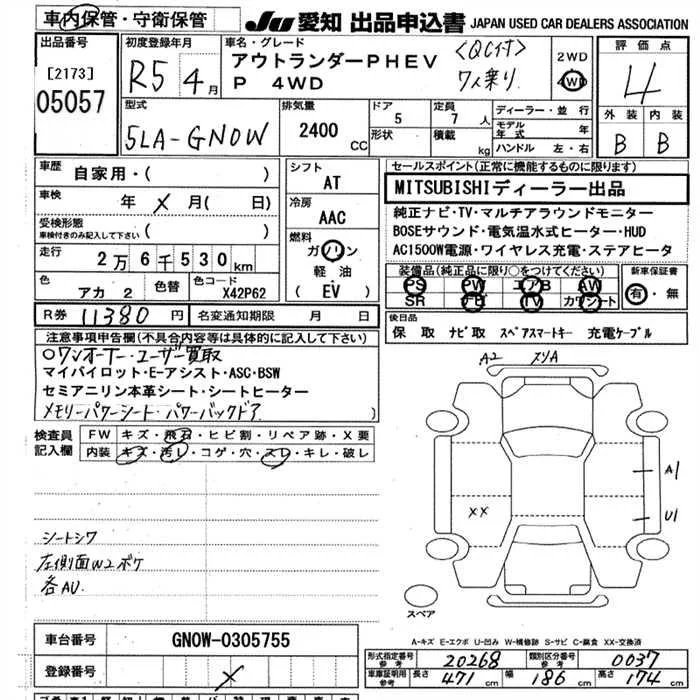 車内保管・守衛保管
JU 愛知 出品申込書 JAPAN USED CAR DEALERS ASSOCIATION
出品番号
[2173]
05057
初度登録年月
R5 4月
車名・グレード
アウトランダーPHEV <QC付>
P 4WD 7人乗り.
2WD
4WD
評価点
4
外装 内装
B B
型式
5LA-GN0W
排気量
2400 CC
ドア
5
形状
定員
7 人
積載
kg
ディーラー・並行
モデル年式 年
ハンドル 左・右
車歴
自家用・( )
車検
年 × 月( 日)
受検形態
車検付きのみ記入して下さい ( )
走行
2万6千530km
色
アカ 2
色替
色コード
X42P62
シフト
AT
冷房
AAC
燃料
ガソリン
軽油
(EV)
セールスポイント(正常に機能するものに限ります)
MITSUBISHIディーラー出品
純正ナビ・TV・マルチアラウンドモニター
BOSEサウンド・電気温水式ヒーター・HUD
AC1500W電源・ワイヤレス充電・ステアヒータ
装備品(純正品に限り○をつけてください)
PS PW エアB AW
SR ナビ TV カワシート
新車保証書
有・無
R券 11380 円 名変通知期限 月 日
後日品
保 取 ナビ取 スペアスマートキー 充電ケーブル
注意事項申告欄(不具合内容等は具体的に記入して下さい)
○ワンオーナー・ユーザー買取
マイパイロット・E-アシスト・ASC・BSW
セミアニリン本革シート・シートヒーター
メモリーパワーシート・パワーバックドア )
検査員記入欄
FW キズ・飛石・ヒビ割・リペア跡・X要
内装 キズ・汚レ・コゲ・穴・スレ・キレ・破レ
シートシワ
左側面W2ボケ
各AU
A2 スリA
A1
U1
XX
スペア
A-キズ E-エクボ U-凹み W-補修跡 S-サビ C-腐食 XX-交換済
車台番号 GN0W-0305755
登録番号 ×
形式指定番号 参考 20268 類別区分番号 参考 0037
車庫証明用 参考 長さ 471 cm 幅 186 cm 高さ 174 cm